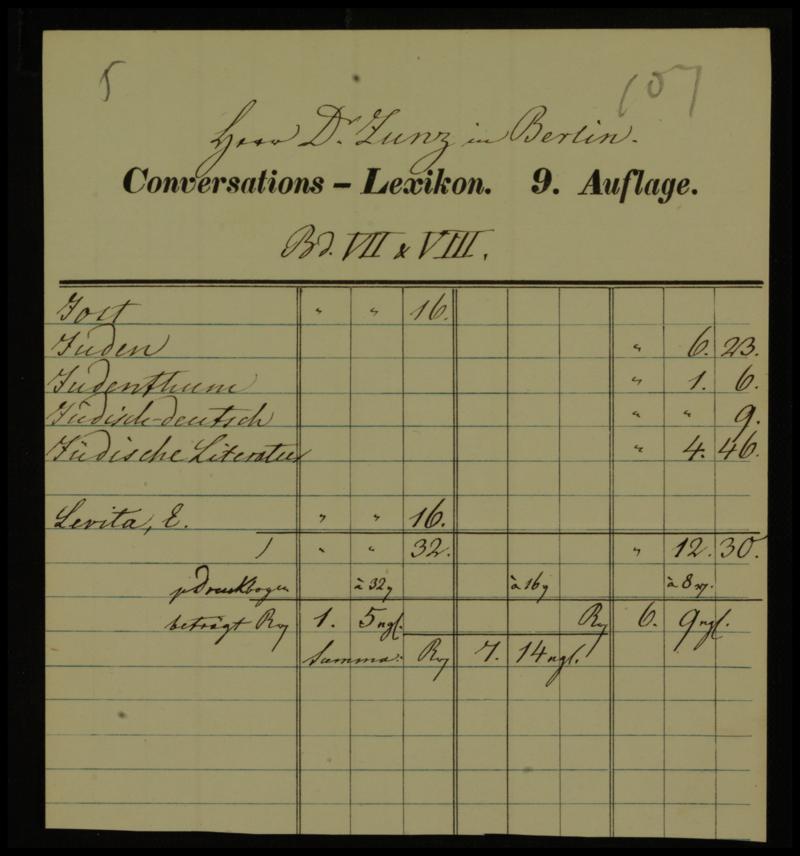 5 107
Herr Dr. Zunz in Berlin.
Conversations – Lexikon. 9. Auflage.
Bd. VII & VIII.
Jost " " 16.
Juden " 6. 23.
Judenthum " 1. 6.
Jüdisch-deutsch " " 9.
Jüdische Literatur " 4. 46.
Levita, E. " " 16.
" " 32. " 12. 30.
p Druckbogen à 32 à 16 à 8
beträgt 1. 5 ngl. 6. 9 ngl.
Summa: 7. 14 ngl.